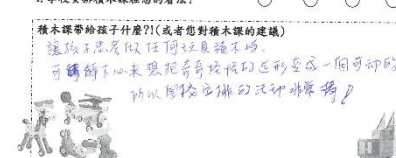 積木課帶給孩子什麼?!(或者您對積木課的建議)
讓孩子思考做任何玩具積木時,
可 靜下心來想把奇奇怪怪的 形變成一個可动的
所以學校安排的活动非常棒!